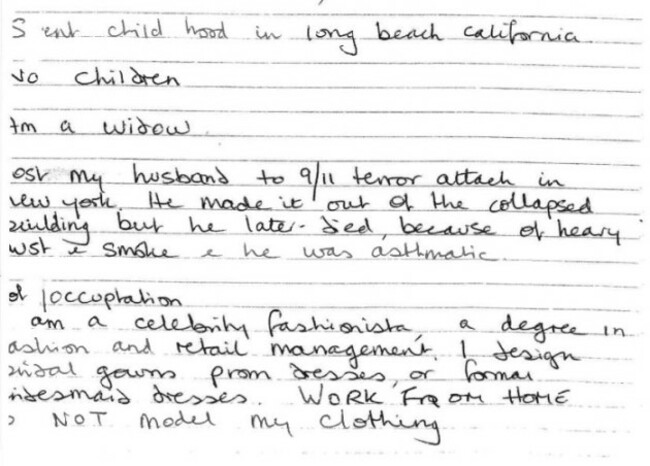 S ent child hood in long beach california
No children
Im a widow
ost my husband to 9/11 terror attach in
new york. He made it out of the collapsed
buildding but he later-died, because of heavy
ust & smoke & he was asthmatic.
of joccuptation
am a celebrity fashionista, a degree in
ashion and retail management. I design
bridal gowns prom dresses, or formal
ridesmaid dresses. WORK FROM HOME
NOT model my clothing